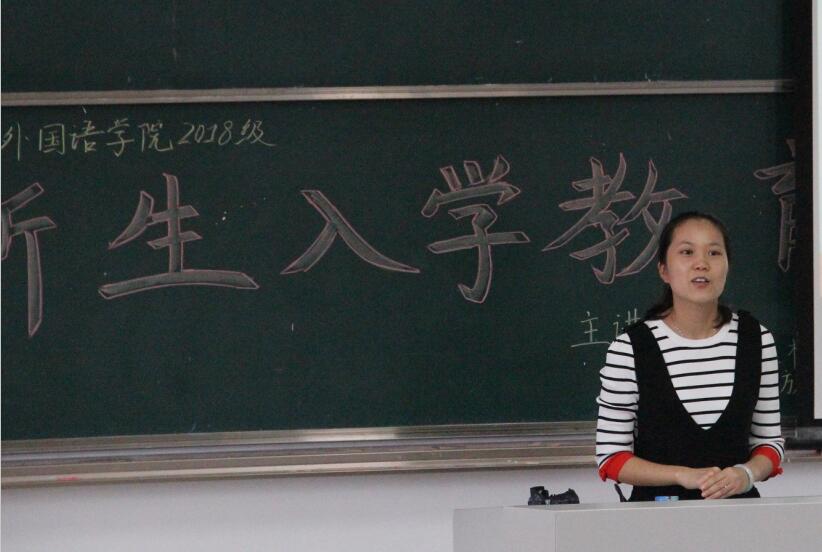 外国语学院2018级
新生入学教育
主讲